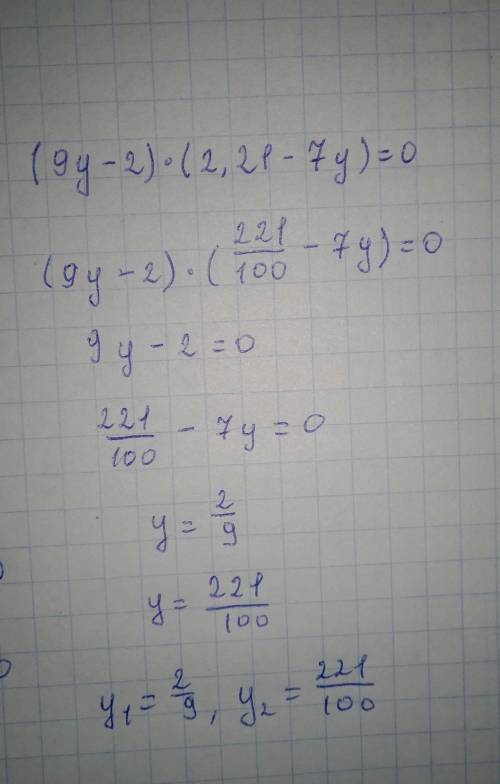 (9y-2)·(2,21-7y)=0
(9y-2)·(221/100-7y)=0
9y-2=0
221/100-7y=0
y=2/9
y=221/100
y₁=2/9, y₂=221/100